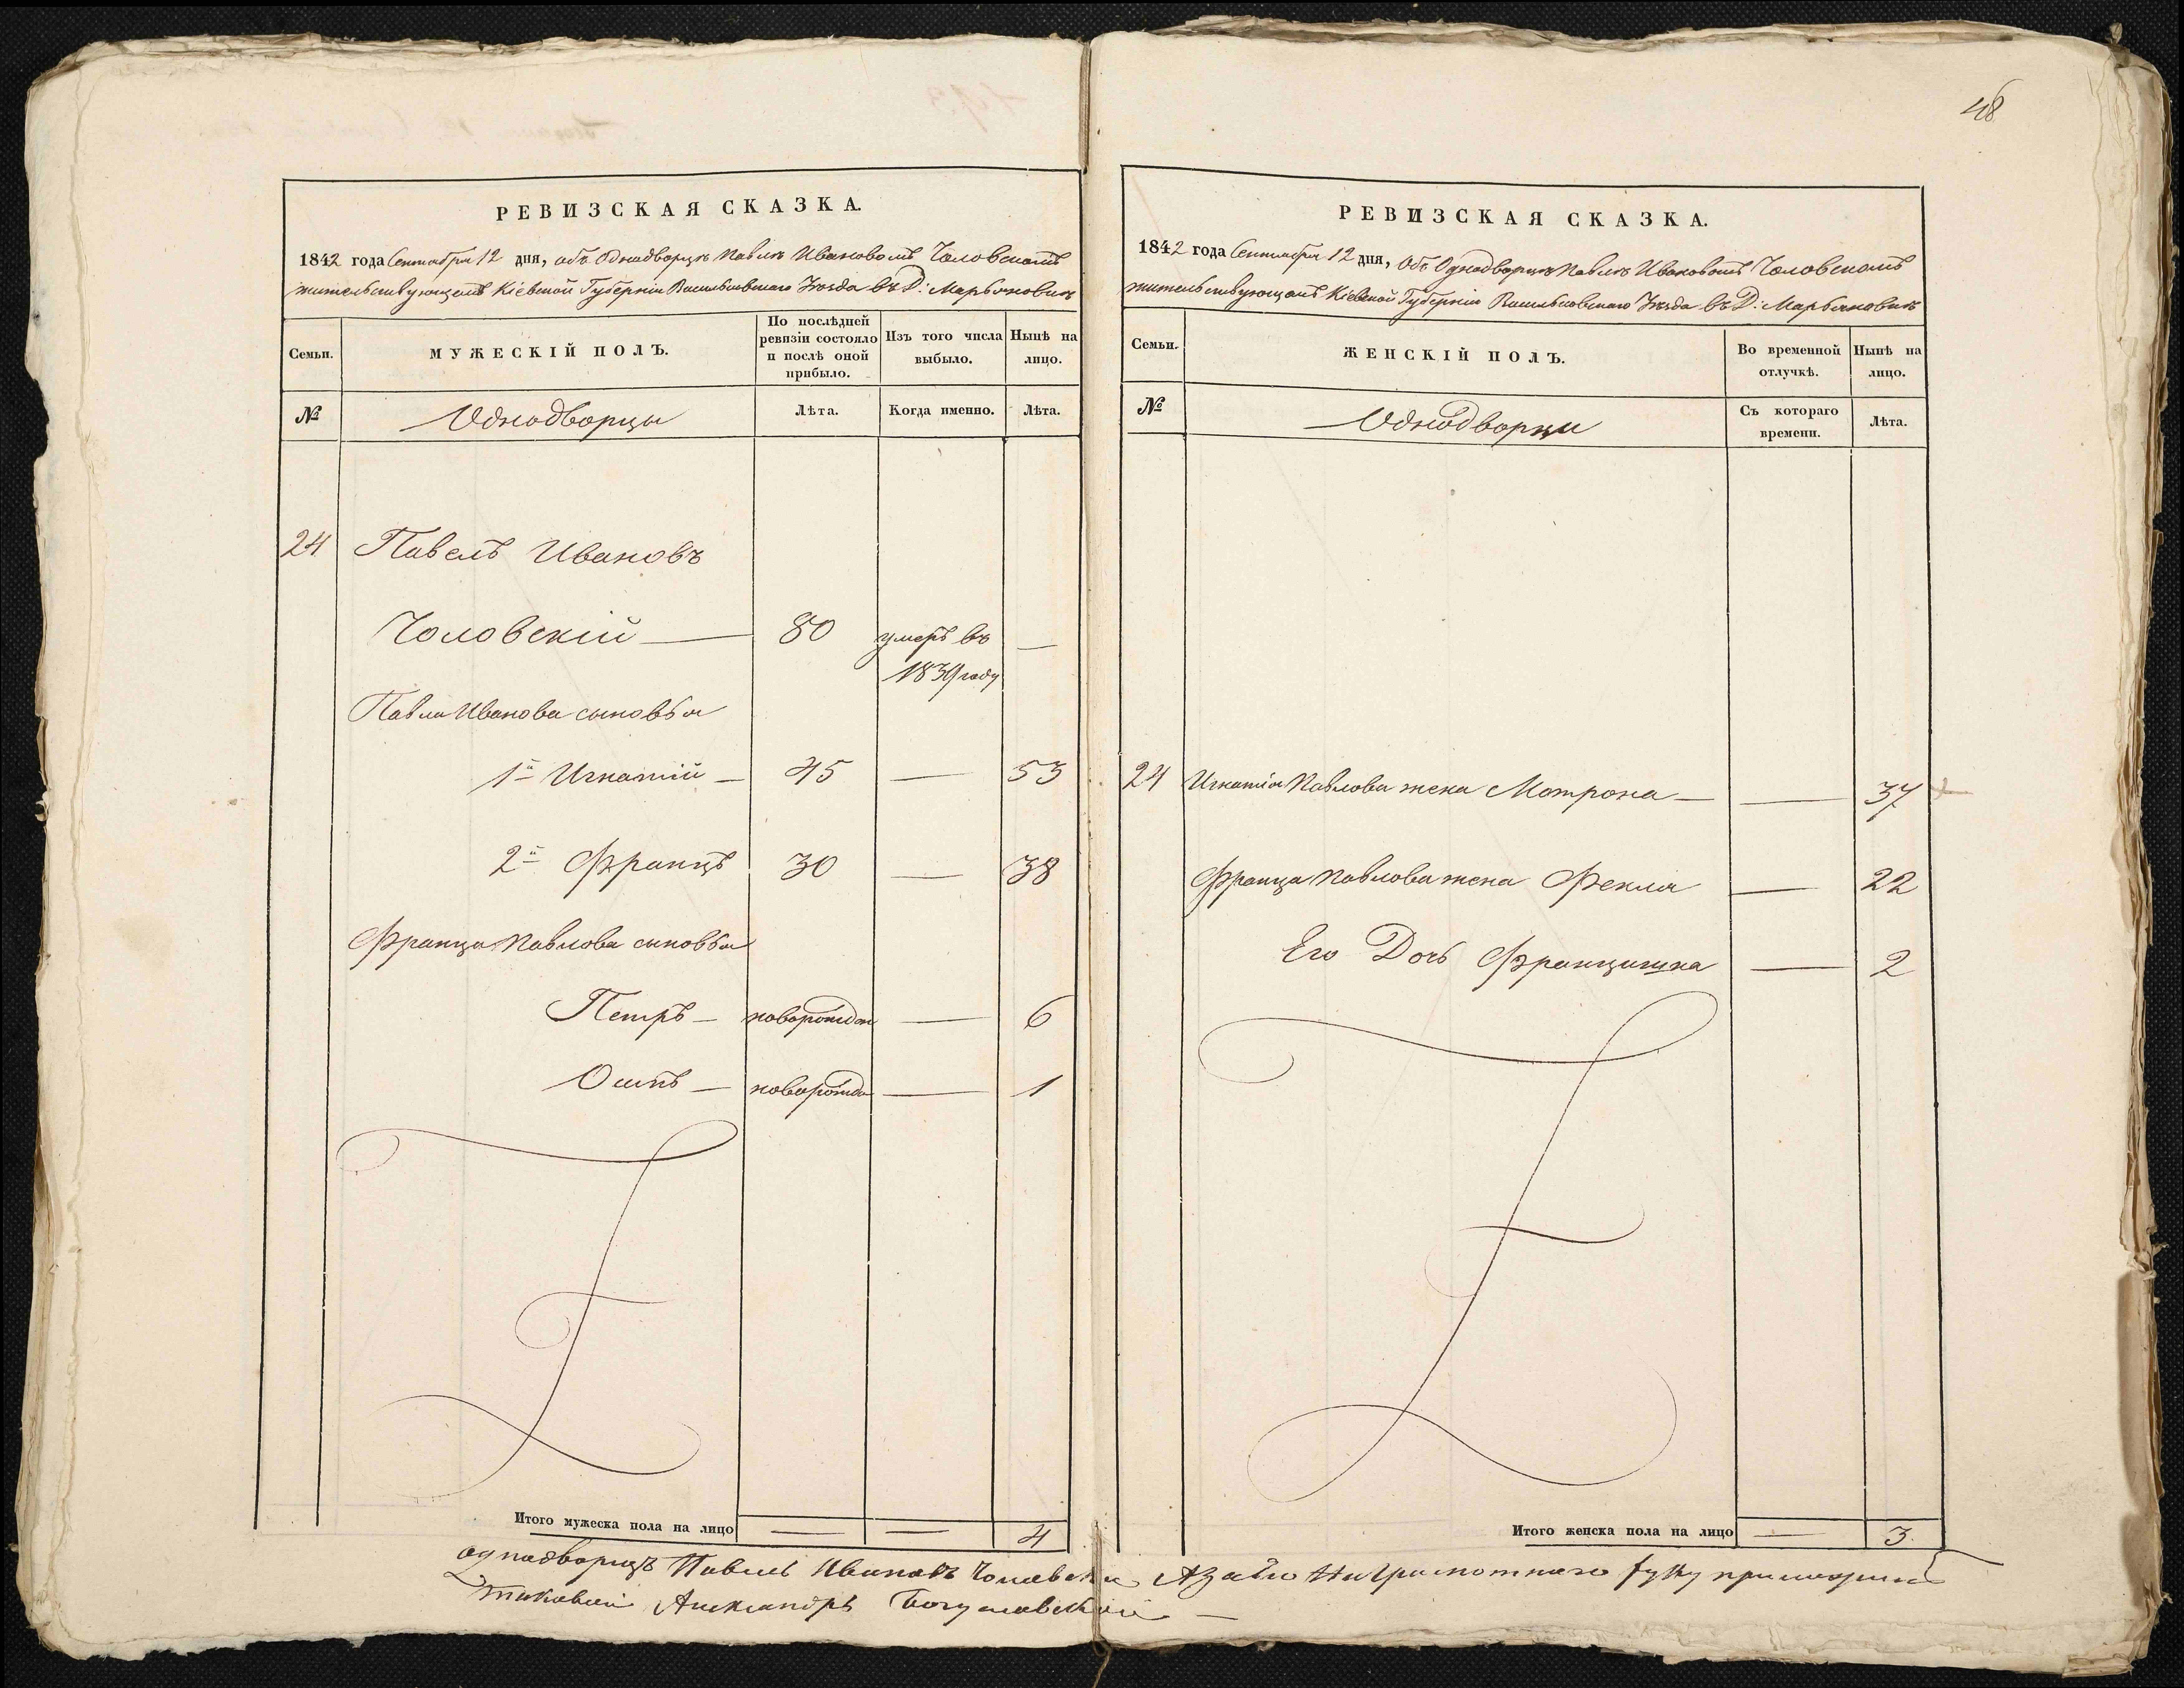 48
РЕВИЗСКАЯ СКАЗКА.
1842 года Сентября 12 дня, объ Однодворце Павле Ивановомъ Чоловскомъ
жительствующемъ Кіевской Губерніи Васильковскаго Уезда въ Д: Марьяновке
Семьи.
МУЖЕСКІЙ ПОЛЪ.
По послѣдней ревизіи состояло и послѣ оной прибыло.
Изъ того числа выбыло.
Нынѣ на лицо.
№
Однодворцы
Лѣта.
Когда именно.
Лѣта.
24 Павелъ Ивановъ
Чоловскій — 80 умеръ въ —
1839 году
Павла Иванова сыновья
1й Игнатій — 45 — 53
2й Францъ 30 — 38
Франца Павлова сыновья
Петръ — новорожден — 6
Осипъ — новорожде — 1
Итого мужеска пола на лицо — — 4
РЕВИЗСКАЯ СКАЗКА.
1842 года Сентября 12 дня, Объ Однодворце Павле Ивановомъ Чоловскомъ
жительствующемъ Кіевской Губерніи Васильковскаго Уезда въ Д: Марьяновке
Семьи.
ЖЕНСКІЙ ПОЛЪ.
Во временной отлучкѣ.
Нынѣ на лицо.
№
Однодворци
Съ котораго времени.
Лѣта.
24 Игнатія Павлова жена Мотрона — — 37
Франца Павлова жена Фекла — 22
Его Дочь Францишка — 2
Итого женска пола на лицо — 3.
однодворецъ Павелъ Ивановъ Чоловски Азаего Ниграмотнаго руку приложил
таковой Александръ Богуславский —